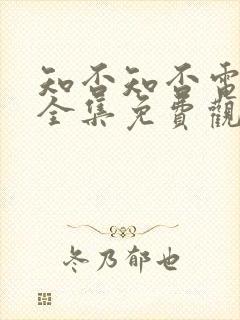 知否知否電
全集免費觀
冬乃郁也